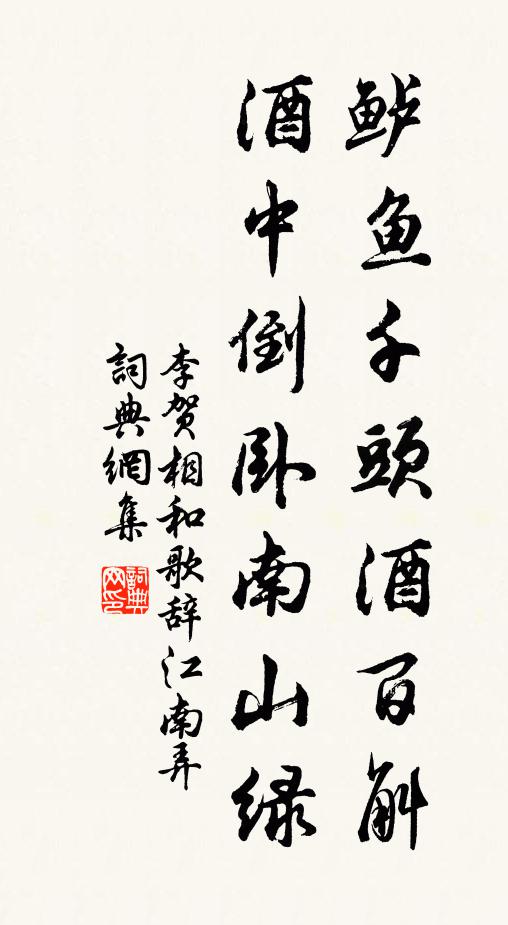 鲈鱼千頭酒百斛
酒中倒卧南山緑
李贺相和歌辞江南弄
詞典網集
詞典网印